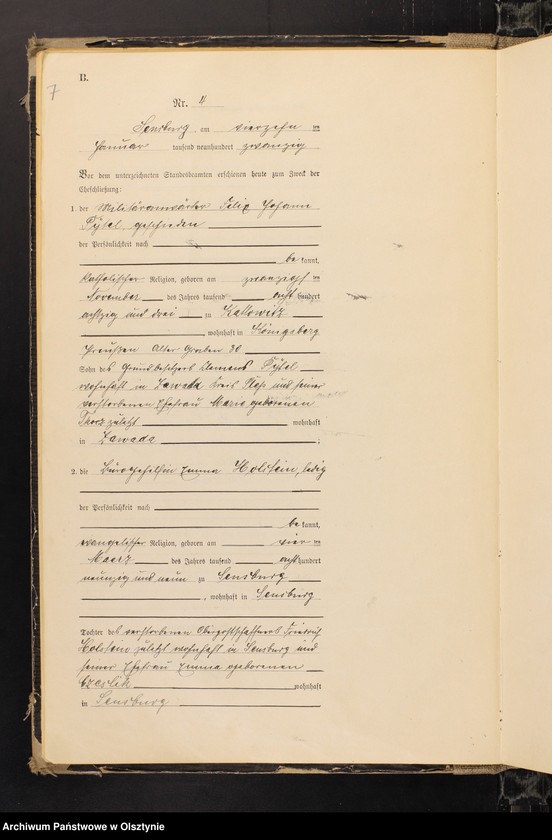 B.
7
Nr. 4
Sensburg, am vierzehn ten
Januar tausend neunhundert zwanzig
Vor dem unterzeichneten Standesbeamten erschienen heute zum Zweck der
Eheschließung:
1. der Militäranwärter Felix Johann
Pytel geschieden
der Persönlichkeit nach
be kannt,
katholischer Religion, geboren am zwanzigsten
November des Jahres tausend acht hundert
achtzig und drei zu Kattowitz
, wohnhaft in Königsberg
Preußen Alter Graben 30
Sohn des Grundbesitzers Klemens Pytel
wohnhaft in Zawada Kreis Pleß und seiner
verstorbenen Ehefrau Marie geborenen
zuletzt wohnhaft
in Zawada ;
2. die Bürogehilfin Emma Holstein, ledig
der Persönlichkeit nach
be kannt,
evangelischer Religion, geboren am vier ten
Maerz des Jahres tausend acht hundert
neunzig und neun zu Sensburg
, wohnhaft in Sensburg
Tochter des verstorbenen Oberpostschaffners Friedrich
Holstein zuletzt wohnhaft in Sensburg und
seiner Ehefrau Emma geborenen
wohnhaft
in Sensburg
Archiwum Państwowe w Olsztynie